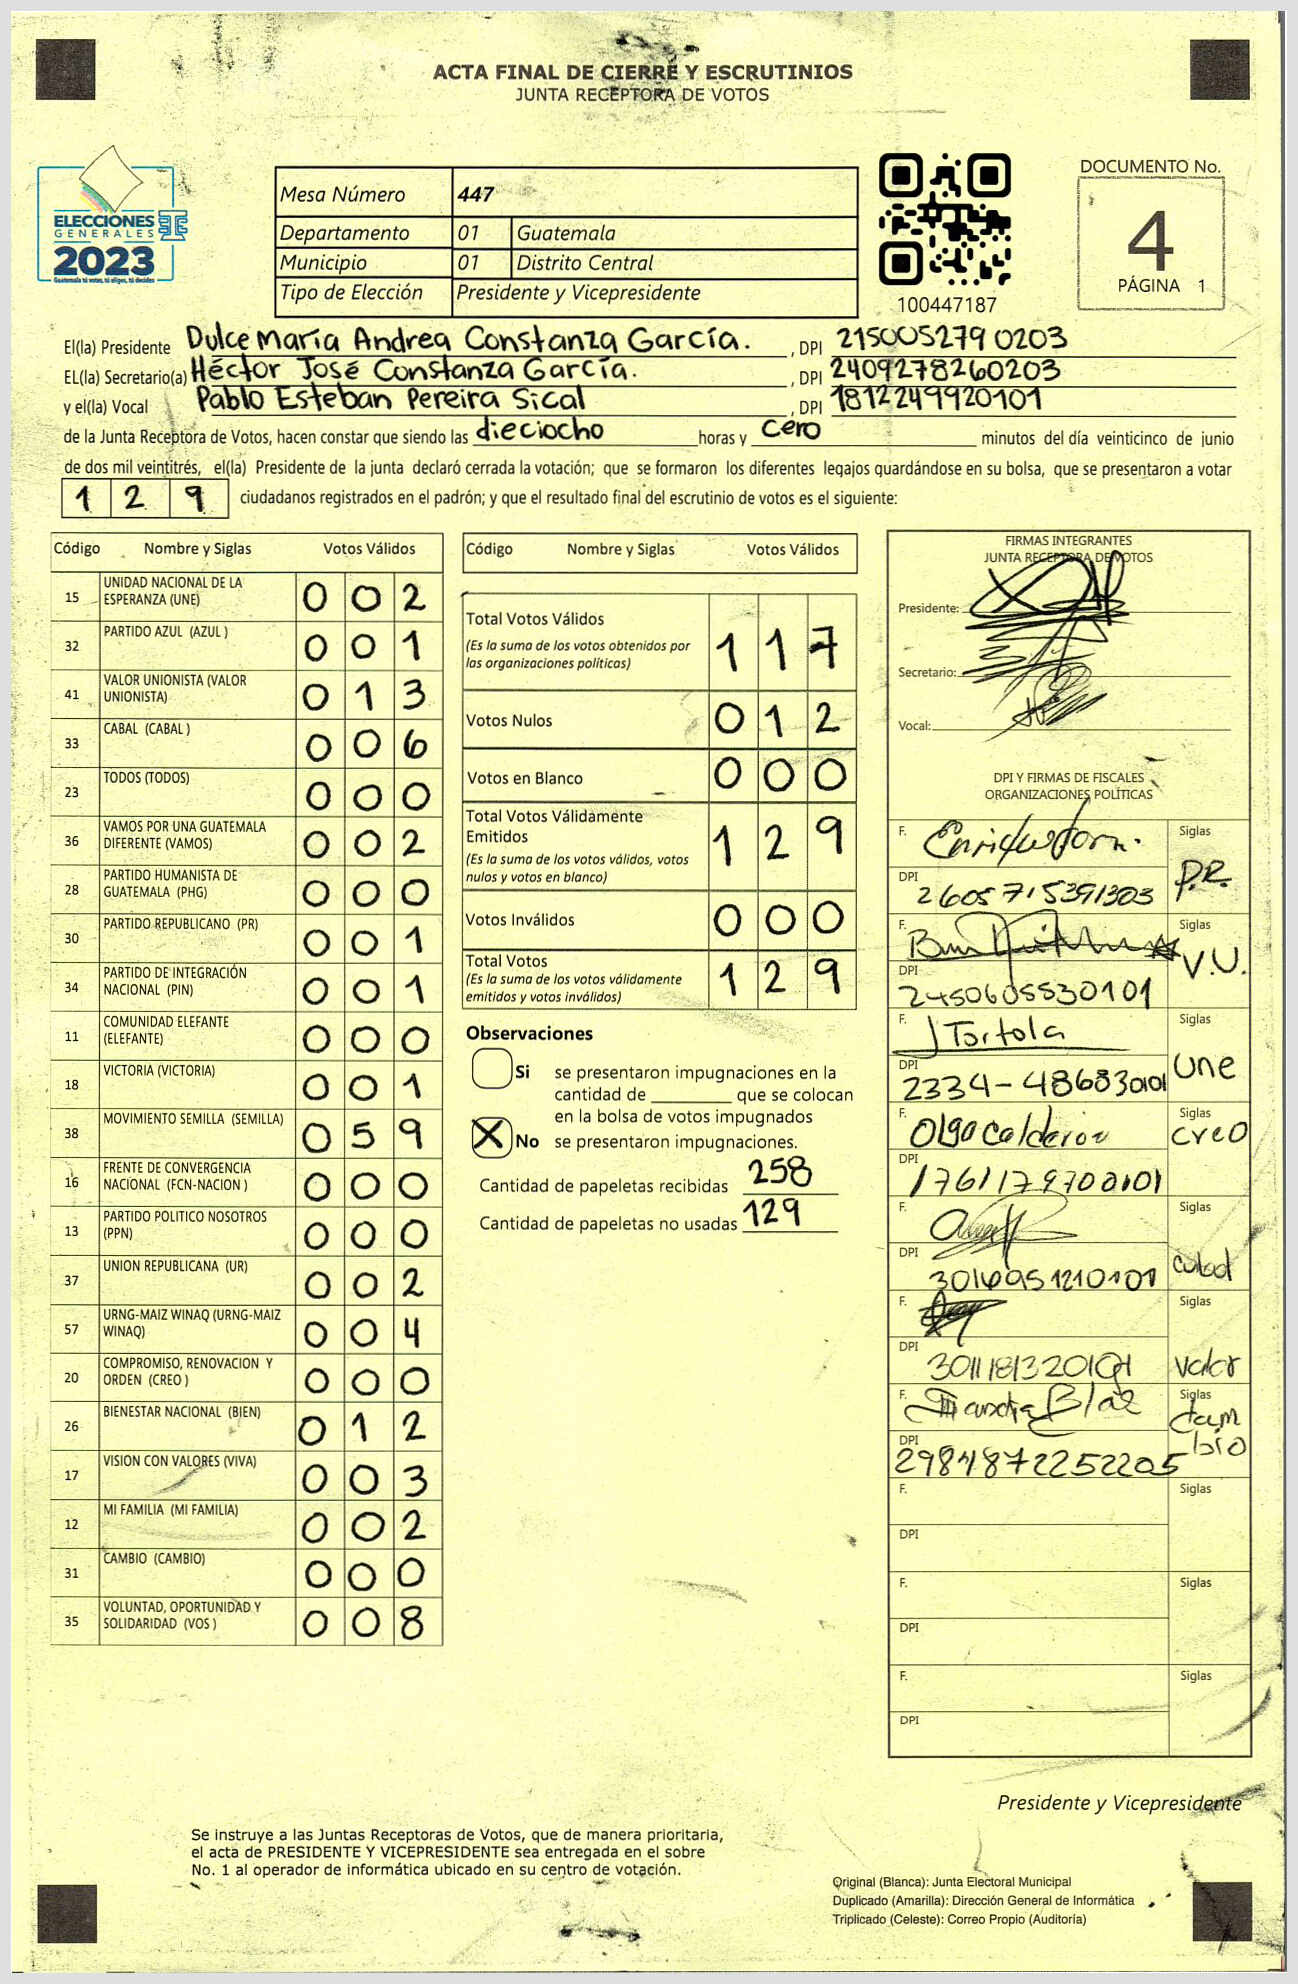 ACTA FINAL DE CIERRE Y ESCRUTINIOS
JUNTA RECEPTORA DE VOTOS
ELECCIONES
GENERALES
2023
Guatemala tú votas, tú eliges, tú decides
Mesa Número 447
Departamento 01 Guatemala
Municipio 01 Distrito Central
Tipo de Elección Presidente y Vicepresidente
100447187
DOCUMENTO No.
4
PÁGINA 1
El(la) Presidente Dulce María Andrea Constanza García. , DPI 215005279 0203
EL(la) Secretario(a) Héctor José Constanza García. , DPI 2409278260203
y el(la) Vocal Pablo Esteban Pereira Sical , DPI 1812249920101
de la Junta Receptora de Votos, hacen constar que siendo las dieciocho horas y cero minutos del día veinticinco de junio
de dos mil veintitrés, el(la) Presidente de la junta declaró cerrada la votación; que se formaron los diferentes legajos guardándose en su bolsa, que se presentaron a votar
1 2 9 ciudadanos registrados en el padrón; y que el resultado final del escrutinio de votos es el siguiente:
Código Nombre y Siglas Votos Válidos
15 UNIDAD NACIONAL DE LA ESPERANZA (UNE) 0 0 2
32 PARTIDO AZUL (AZUL ) 0 0 1
41 VALOR UNIONISTA (VALOR UNIONISTA) 0 1 3
33 CABAL (CABAL ) 0 0 6
23 TODOS (TODOS) 0 0 0
36 VAMOS POR UNA GUATEMALA DIFERENTE (VAMOS) 0 0 2
28 PARTIDO HUMANISTA DE GUATEMALA (PHG) 0 0 0
30 PARTIDO REPUBLICANO (PR) 0 0 1
34 PARTIDO DE INTEGRACIÓN NACIONAL (PIN) 0 0 1
11 COMUNIDAD ELEFANTE (ELEFANTE) 0 0 0
18 VICTORIA (VICTORIA) 0 0 1
38 MOVIMIENTO SEMILLA (SEMILLA) 0 5 9
16 FRENTE DE CONVERGENCIA NACIONAL (FCN-NACION ) 0 0 0
13 PARTIDO POLITICO NOSOTROS (PPN) 0 0 0
37 UNION REPUBLICANA (UR) 0 0 2
57 URNG-MAIZ WINAQ (URNG-MAIZ WINAQ) 0 0 4
20 COMPROMISO, RENOVACION Y ORDEN (CREO ) 0 0 0
26 BIENESTAR NACIONAL (BIEN) 0 1 2
17 VISION CON VALORES (VIVA) 0 0 3
12 MI FAMILIA (MI FAMILIA) 0 0 2
31 CAMBIO (CAMBIO) 0 0 0
35 VOLUNTAD, OPORTUNIDAD Y SOLIDARIDAD (VOS ) 0 0 8
Código Nombre y Siglas Votos Válidos
Total Votos Válidos 1 1 7
(Es la suma de los votos obtenidos por
las organizaciones políticas)
Votos Nulos 0 1 2
Votos en Blanco 0 0 0
Total Votos Válidamente
Emitidos 1 2 9
(Es la suma de los votos válidos, votos
nulos y votos en blanco)
Votos Inválidos 0 0 0
Total Votos 1 2 9
(Es la suma de los votos válidamente
emitidos y votos inválidos)
Observaciones
Si se presentaron impugnaciones en la
cantidad de ________ que se colocan
en la bolsa de votos impugnados
X No se presentaron impugnaciones.
Cantidad de papeletas recibidas 258
Cantidad de papeletas no usadas 129
FIRMAS INTEGRANTES
JUNTA RECEPTORA DE VOTOS
Presidente:
Secretario:
Vocal:
DPI Y FIRMAS DE FISCALES
ORGANIZACIONES POLÍTICAS
F. Siglas P.R.
DPI 2605715391303
F. Siglas V.U.
DPI 2450605530101
F. J Tortola Siglas une
DPI 2334-486830101
F. Olga Calderon Siglas creo
DPI 1761179700101
F. Siglas
DPI 3016951210101
F. Siglas valor
DPI 3011181320101
F. Siglas cambio
DPI 2984872252205
F. Siglas
DPI
F. Siglas
DPI
F. Siglas
DPI
Presidente y Vicepresidente
Se instruye a las Juntas Receptoras de Votos, que de manera prioritaria,
el acta de PRESIDENTE Y VICEPRESIDENTE sea entregada en el sobre
No. 1 al operador de informática ubicado en su centro de votación.
Original (Blanca): Junta Electoral Municipal
Duplicado (Amarilla): Dirección General de Informática
Triplicado (Celeste): Correo Propio (Auditoría)